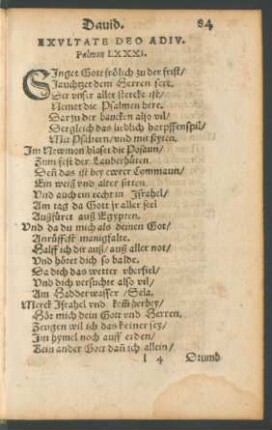 David. 84
EXVLTATE DEO ADIV.
Psalmus LXXXI.
SInget Gott frölich zu der frist/
Jauchtzet dem Herren fert.
Der vnser aller stercke ist/
Nemet die Psalmen here.
Dar zu der baucken also vil/
Dergleich das lieblich harpffenspil/
Mit Psaltern/ vnd mit Lyren.
Im Newmon blaset die Posaun/
Zum fest der Lauberhüten.
Deñ das ist bey ewrer Commaun/
Ein weiß vnd alter sitten.
Vnd auch ein recht in Israhel/
Am tag da Gott jr aller seel
Außfüret auß Egypten.
Vnd da du mich als deinen Got/
Anrüffest manigfalte.
Halff ich dir auß/ auß aller not/
Vnd höret dich so balde.
Da dich das wetter vberfiel/
Vnd dich versuchte also vil/
Am Hadderwasser/ Sela.
Merck Israhel vnd kom herbey/
Hör mich dein Gott vnd Herren.
Zeugen wil ich das keiner sey/
Im hymel noch auff erden/
Kein ander Gott dañ ich allein/
l 4 Drumb